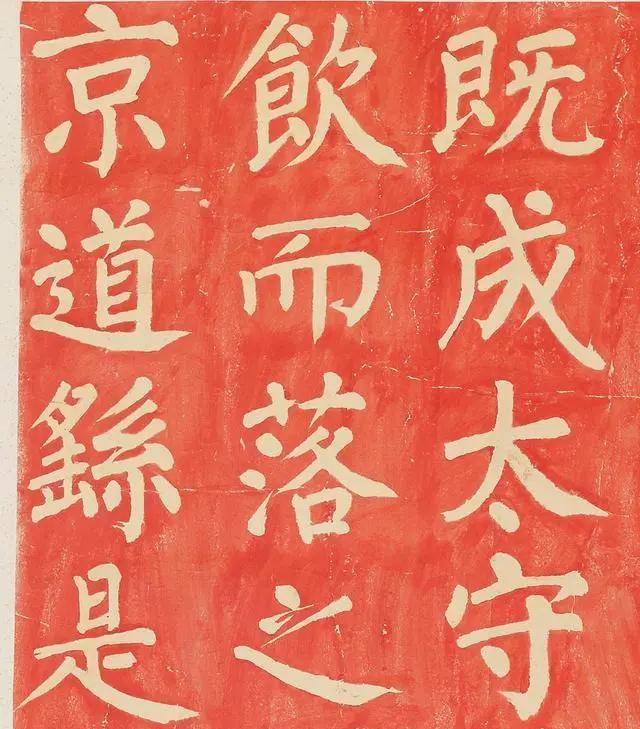 既成太守
飲而落之
京道繇是